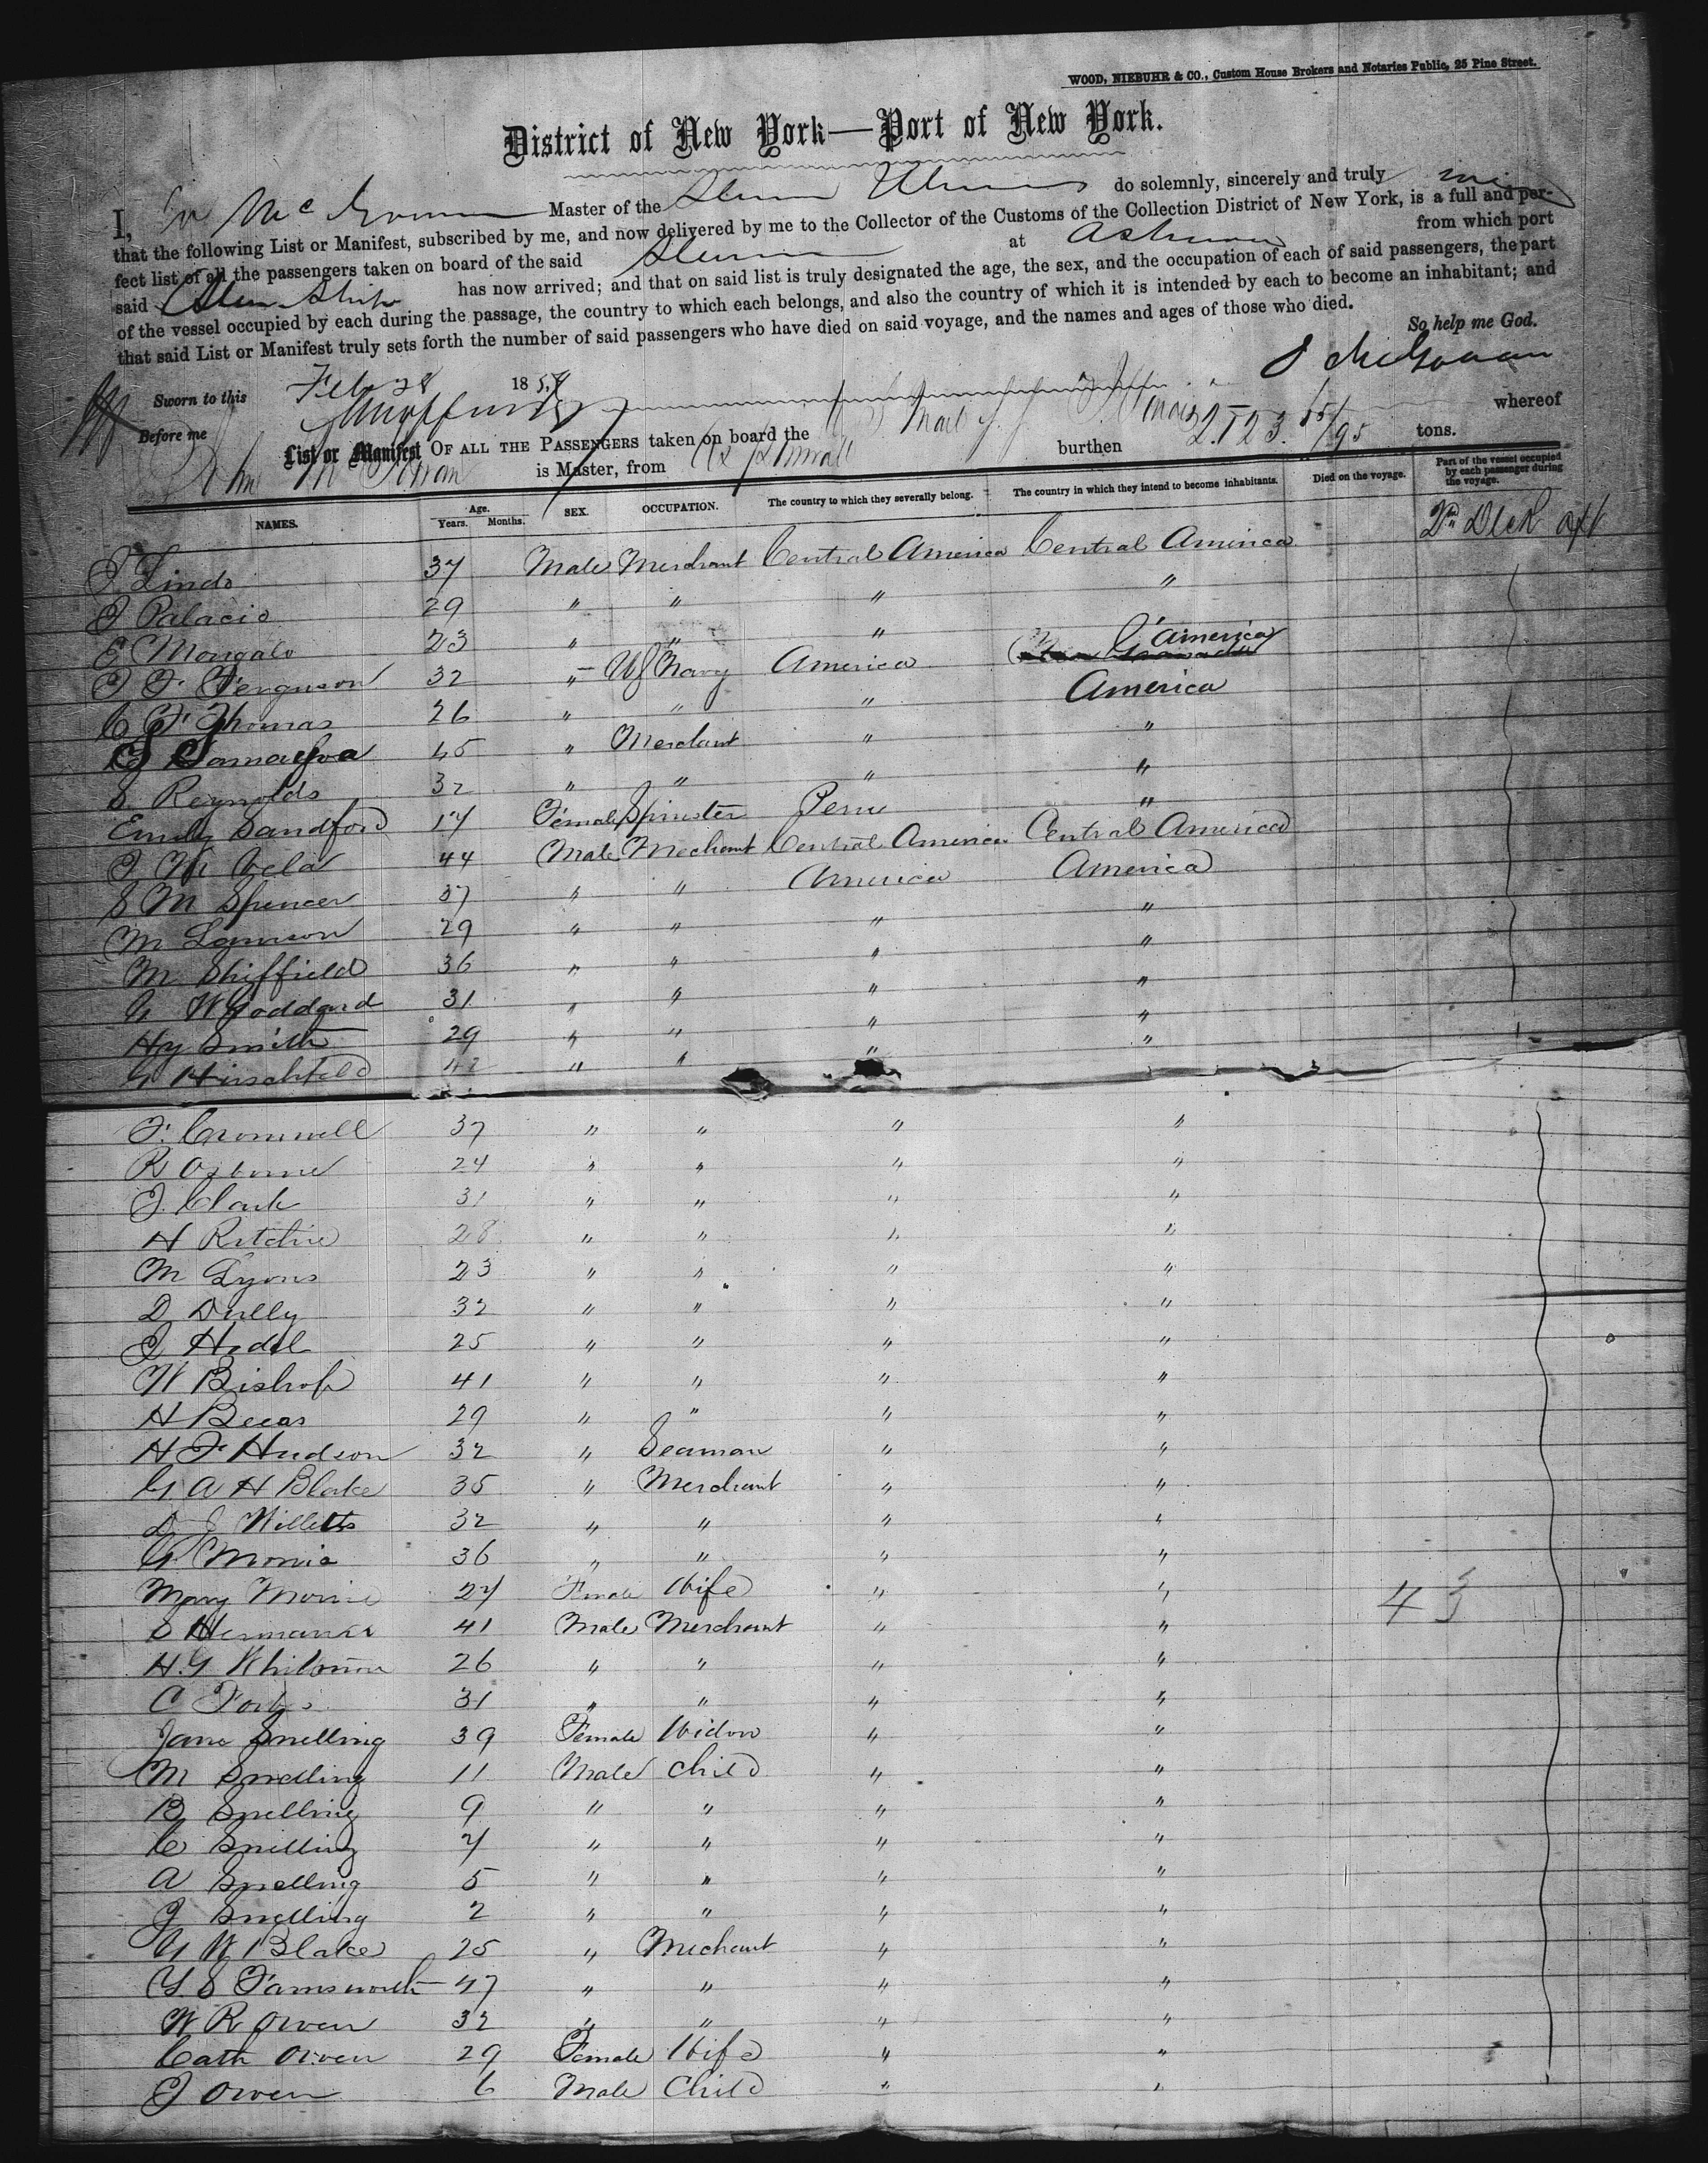 WOOD, NIEBUHR & CO., Custom House Brokers and Notaries Public, 25 Pine Street.
District of New York—Port of New York.
I, Mc Master of the do solemnly, sincerely and truly
that the following List or Manifest, subscribed by me, and now delivered by me to the Collector of the Customs of the Collection District of New York, is a full and per-
fect list of all the passengers taken on board of the said at from which port
said Steam Ship has now arrived; and that on said list is truly designated the age, the sex, and the occupation of each of said passengers, the part
of the vessel occupied by each during the passage, the country to which each belongs, and also the country of which it is intended by each to become an inhabitant; and
that said List or Manifest truly sets forth the number of said passengers who have died on said voyage, and the names and ages of those who died.
So help me God.
J McGowan
Sworn to this Feby 28 185
Before me
List or Manifest OF ALL THE PASSENGERS taken on board the Mail Illinois whereof
is Master, from burthen 2123. /95 tons.
NAMES. Age. Years. Months. SEX. OCCUPATION. The country to which they severally belong. The country in which they intend to become inhabitants. Died on the voyage. Part of the vessel occupied by each passenger during the voyage.
J Lindo 37 Male Merchant Central America Central America 2nd Deck aft
J Palacio 29 " " " "
E Mongalo 23 " " " C. America
J F Ferguson 32 " US Navy America America
C F Thomas 26 " " " "
45 " Merchant " "
S. Reynolds 32 " " " "
Emily Sandford 17 Female Spinster Peru "
J M Vela 44 Male Mechant Central America Central America
S M Spencer 37 " " America America
M 29 " " " "
M Shiffield 36 " " " "
G W Goddard 31 " " " "
Hy Smith 29 " " " "
G Hirschfeld 42 " " " "
F. Cromwell 37 " " " "
R Osborne 24 " " " "
J. Clark 31 " " " "
H Ritchie 28 " " " "
M Lyons 23 " " " "
D Dully 32 " " " "
J 25 " " " "
W Bishop 41 " " " "
H 29 " " " "
H F Hudson 32 " Seaman " "
G A H Blake 35 " Merchant " "
D J Willetts 32 " " " "
G. 36 " " " "
Mary 27 Female Wife " "
41 Male Merchant " " 43
H. G 26 " " " "
C 31 " " " "
Jane Snelling 39 Female Widow " "
M Snelling 11 Male Child " "
B Snelling 9 " " " "
C Snelling 7 " " " "
A Snelling 5 " " " "
J Snelling 2 " " " "
G W Blake 25 " Mechant " "
Y S Farnsworth 47 " " " "
W R Owen 32 " " " "
Cath Owen 29 Female Wife " "
J Owen 6 Male Child " "